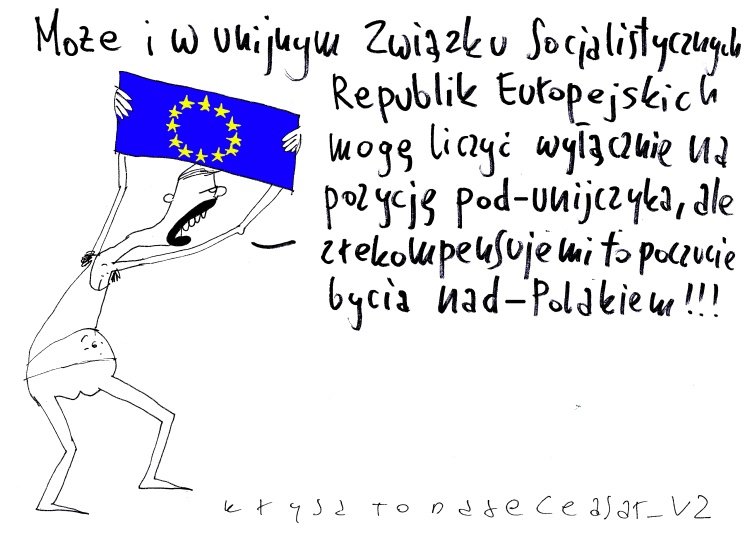 Może i w unijnym Związku Socjalistycznych
Republik Europejskich
mogę liczyć wyłącznie na
pozycję pod-unijczyka, ale
zrekompensuje mi to poczucie
bycia nad-Polakiem!!!
krysztonareCeasar_V2